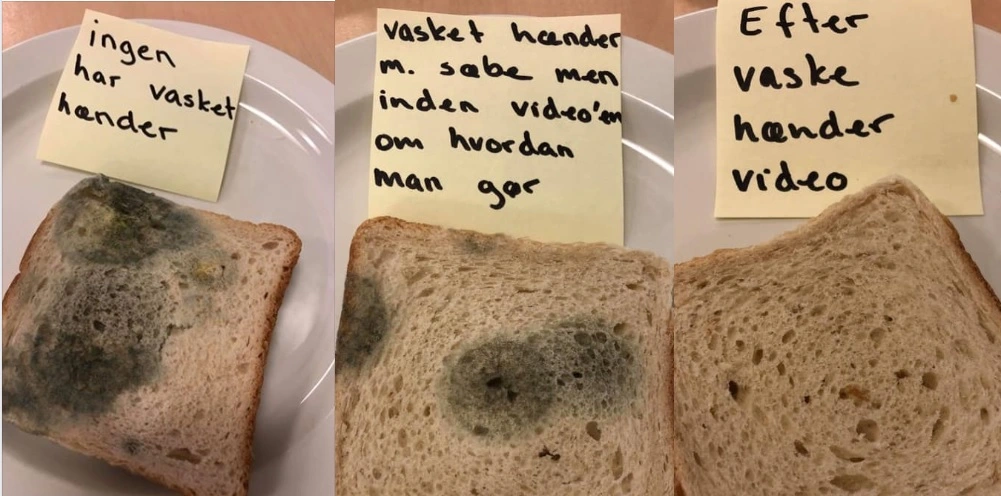 ingen
har vasket
hænder
vasket hænder
m. sæbe men
inden video'en
om hvordan
man gør
Efter
vaske
hænder
video